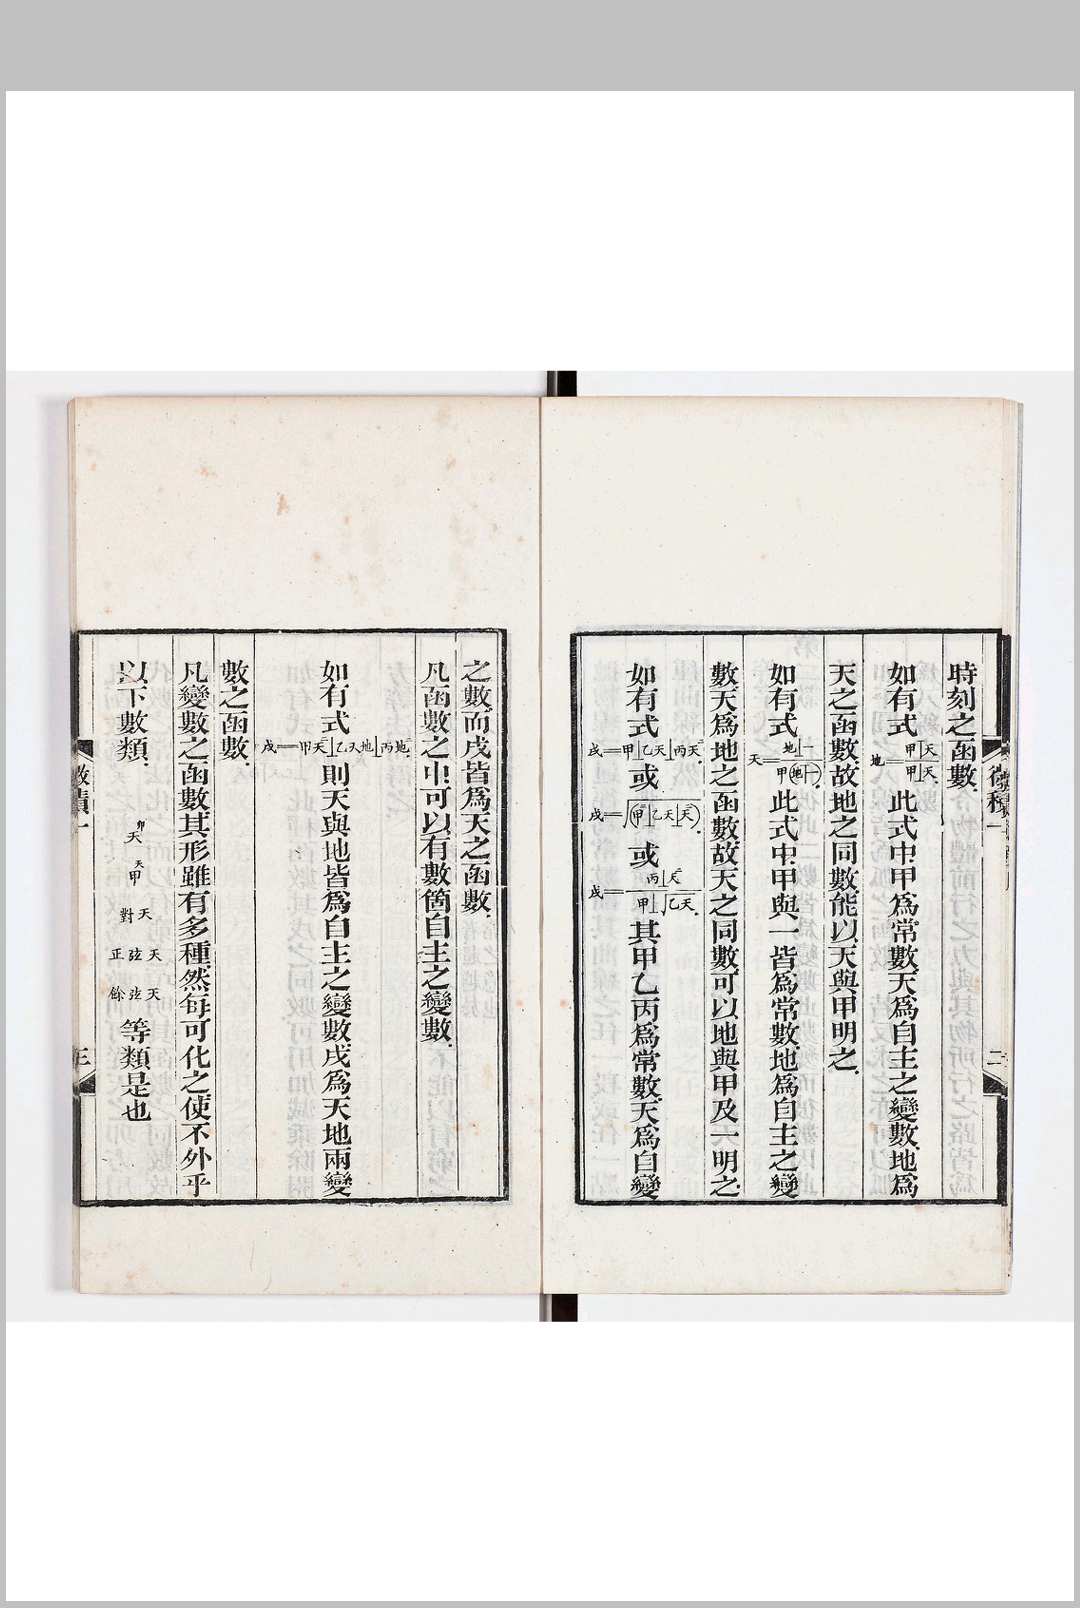 時刻之函數
如有式 地=甲⊥天 甲⊤天 此式中甲爲常數天爲自主之變數地爲
天之函數故地之同數能以天與甲明之
如有式 天=甲(地⊥一) 地⊤一 此式中甲與一皆爲常數地爲自主之變
數天爲地之函數故天之同數可以地與甲及一明之
如有式 戌=甲⊥乙天⊥丙天 或 戌=√(甲⊥乙天⊥天) 或 戌= 丙⊥天 甲⊥√乙天 其甲乙丙爲常數天爲自變
微積一
二
之數而戌皆爲天之函數
凡函數之中可以有數箇自主之變數
如有式 戌=甲天⊥乙天地⊥丙地 則天與地皆爲自主之變數戌爲天地兩變
數之函數
凡變數之函數其形雖有多種然每可化之使不外乎
以下數類 天 甲天 對天 正弦天 餘弦天 等類是也
微積一
三